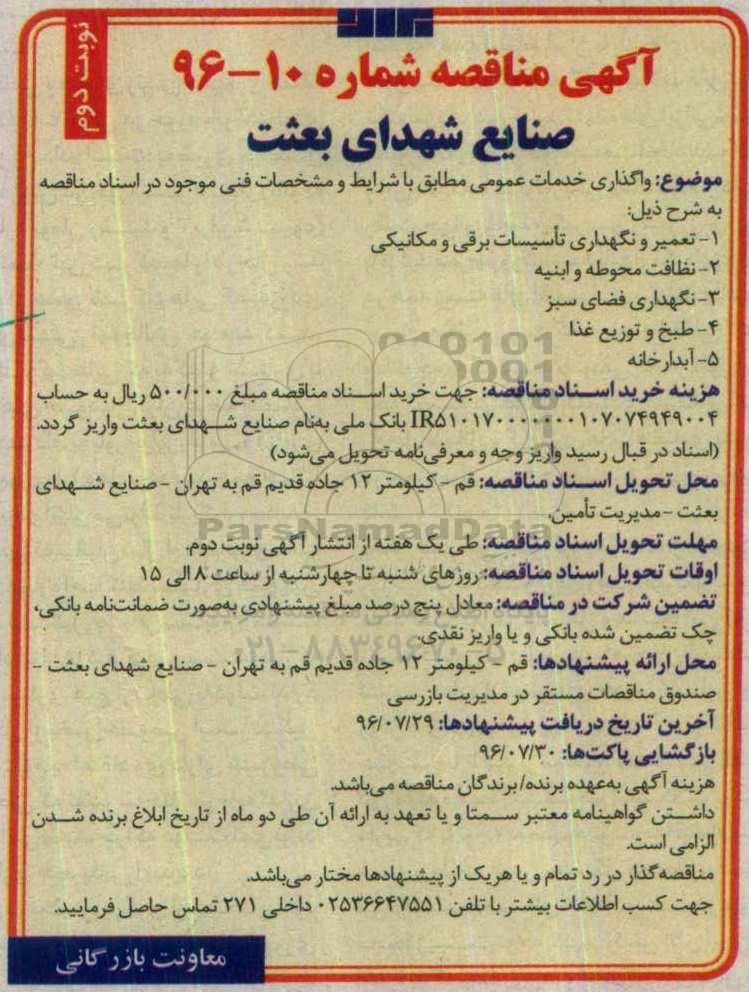 نوبت دوم
آگهی مناقصه شماره ۱۰-۹۶
صنایع شهدای بعثت
موضوع: واگذاری خدمات عمومی مطابق با شرایط و مشخصات فنی موجود در اسناد مناقصه
به شرح ذیل:
۱- تعمیر و نگهداری تأسیسات برقی و مکانیکی
۲- نظافت محوطه و ابنیه
۳- نگهداری فضای سبز
۴- طبخ و توزیع غذا
۵- آبدارخانه
هزینه خرید اسناد مناقصه: جهت خرید اسناد مناقصه مبلغ ۵۰۰/۰۰۰ ریال به حساب
IR۵۱۰۱۷۰۰۰۰۰۰۰۱۰۷۰۷۴۹۴۹۰۰۴ بانک ملی به‌نام صنایع شهدای بعثت واریز گردد.
(اسناد در قبال رسید واریز وجه و معرفی‌نامه تحویل می‌شود)
محل تحویل اسناد مناقصه: قم - کیلومتر ۱۲ جاده قدیم قم به تهران - صنایع شهدای
بعثت - مدیریت تأمین.
ParsNamadData
مهلت تحویل اسناد مناقصه: طی یک هفته از انتشار آگهی نوبت دوم.
اوقات تحویل اسناد مناقصه: روزهای شنبه تا چهارشنبه از ساعت ۸ الی ۱۵
تضمین شرکت در مناقصه: معادل پنج درصد مبلغ پیشنهادی به‌صورت ضمانت‌نامه بانکی،
چک تضمین شده بانکی و یا واریز نقدی.
محل ارائه پیشنهادها: قم - کیلومتر ۱۲ جاده قدیم قم به تهران - صنایع شهدای بعثت -
صندوق مناقصات مستقر در مدیریت بازرسی
آخرین تاریخ دریافت پیشنهادها: ۹۶/۰۷/۲۹
بازگشایی پاکت‌ها: ۹۶/۰۷/۳۰
هزینه آگهی به‌عهده برنده/برندگان مناقصه می‌باشد.
داشتن گواهینامه معتبر سمتا و یا تعهد به ارائه آن طی دو ماه از تاریخ ابلاغ برنده شدن
الزامی است.
مناقصه‌گذار در رد تمام و یا هریک از پیشنهادها مختار می‌باشد.
جهت کسب اطلاعات بیشتر با تلفن ۰۲۵۳۶۶۴۷۵۵۱ داخلی ۲۷۱ تماس حاصل فرمایید.
معاونت بازرگانی